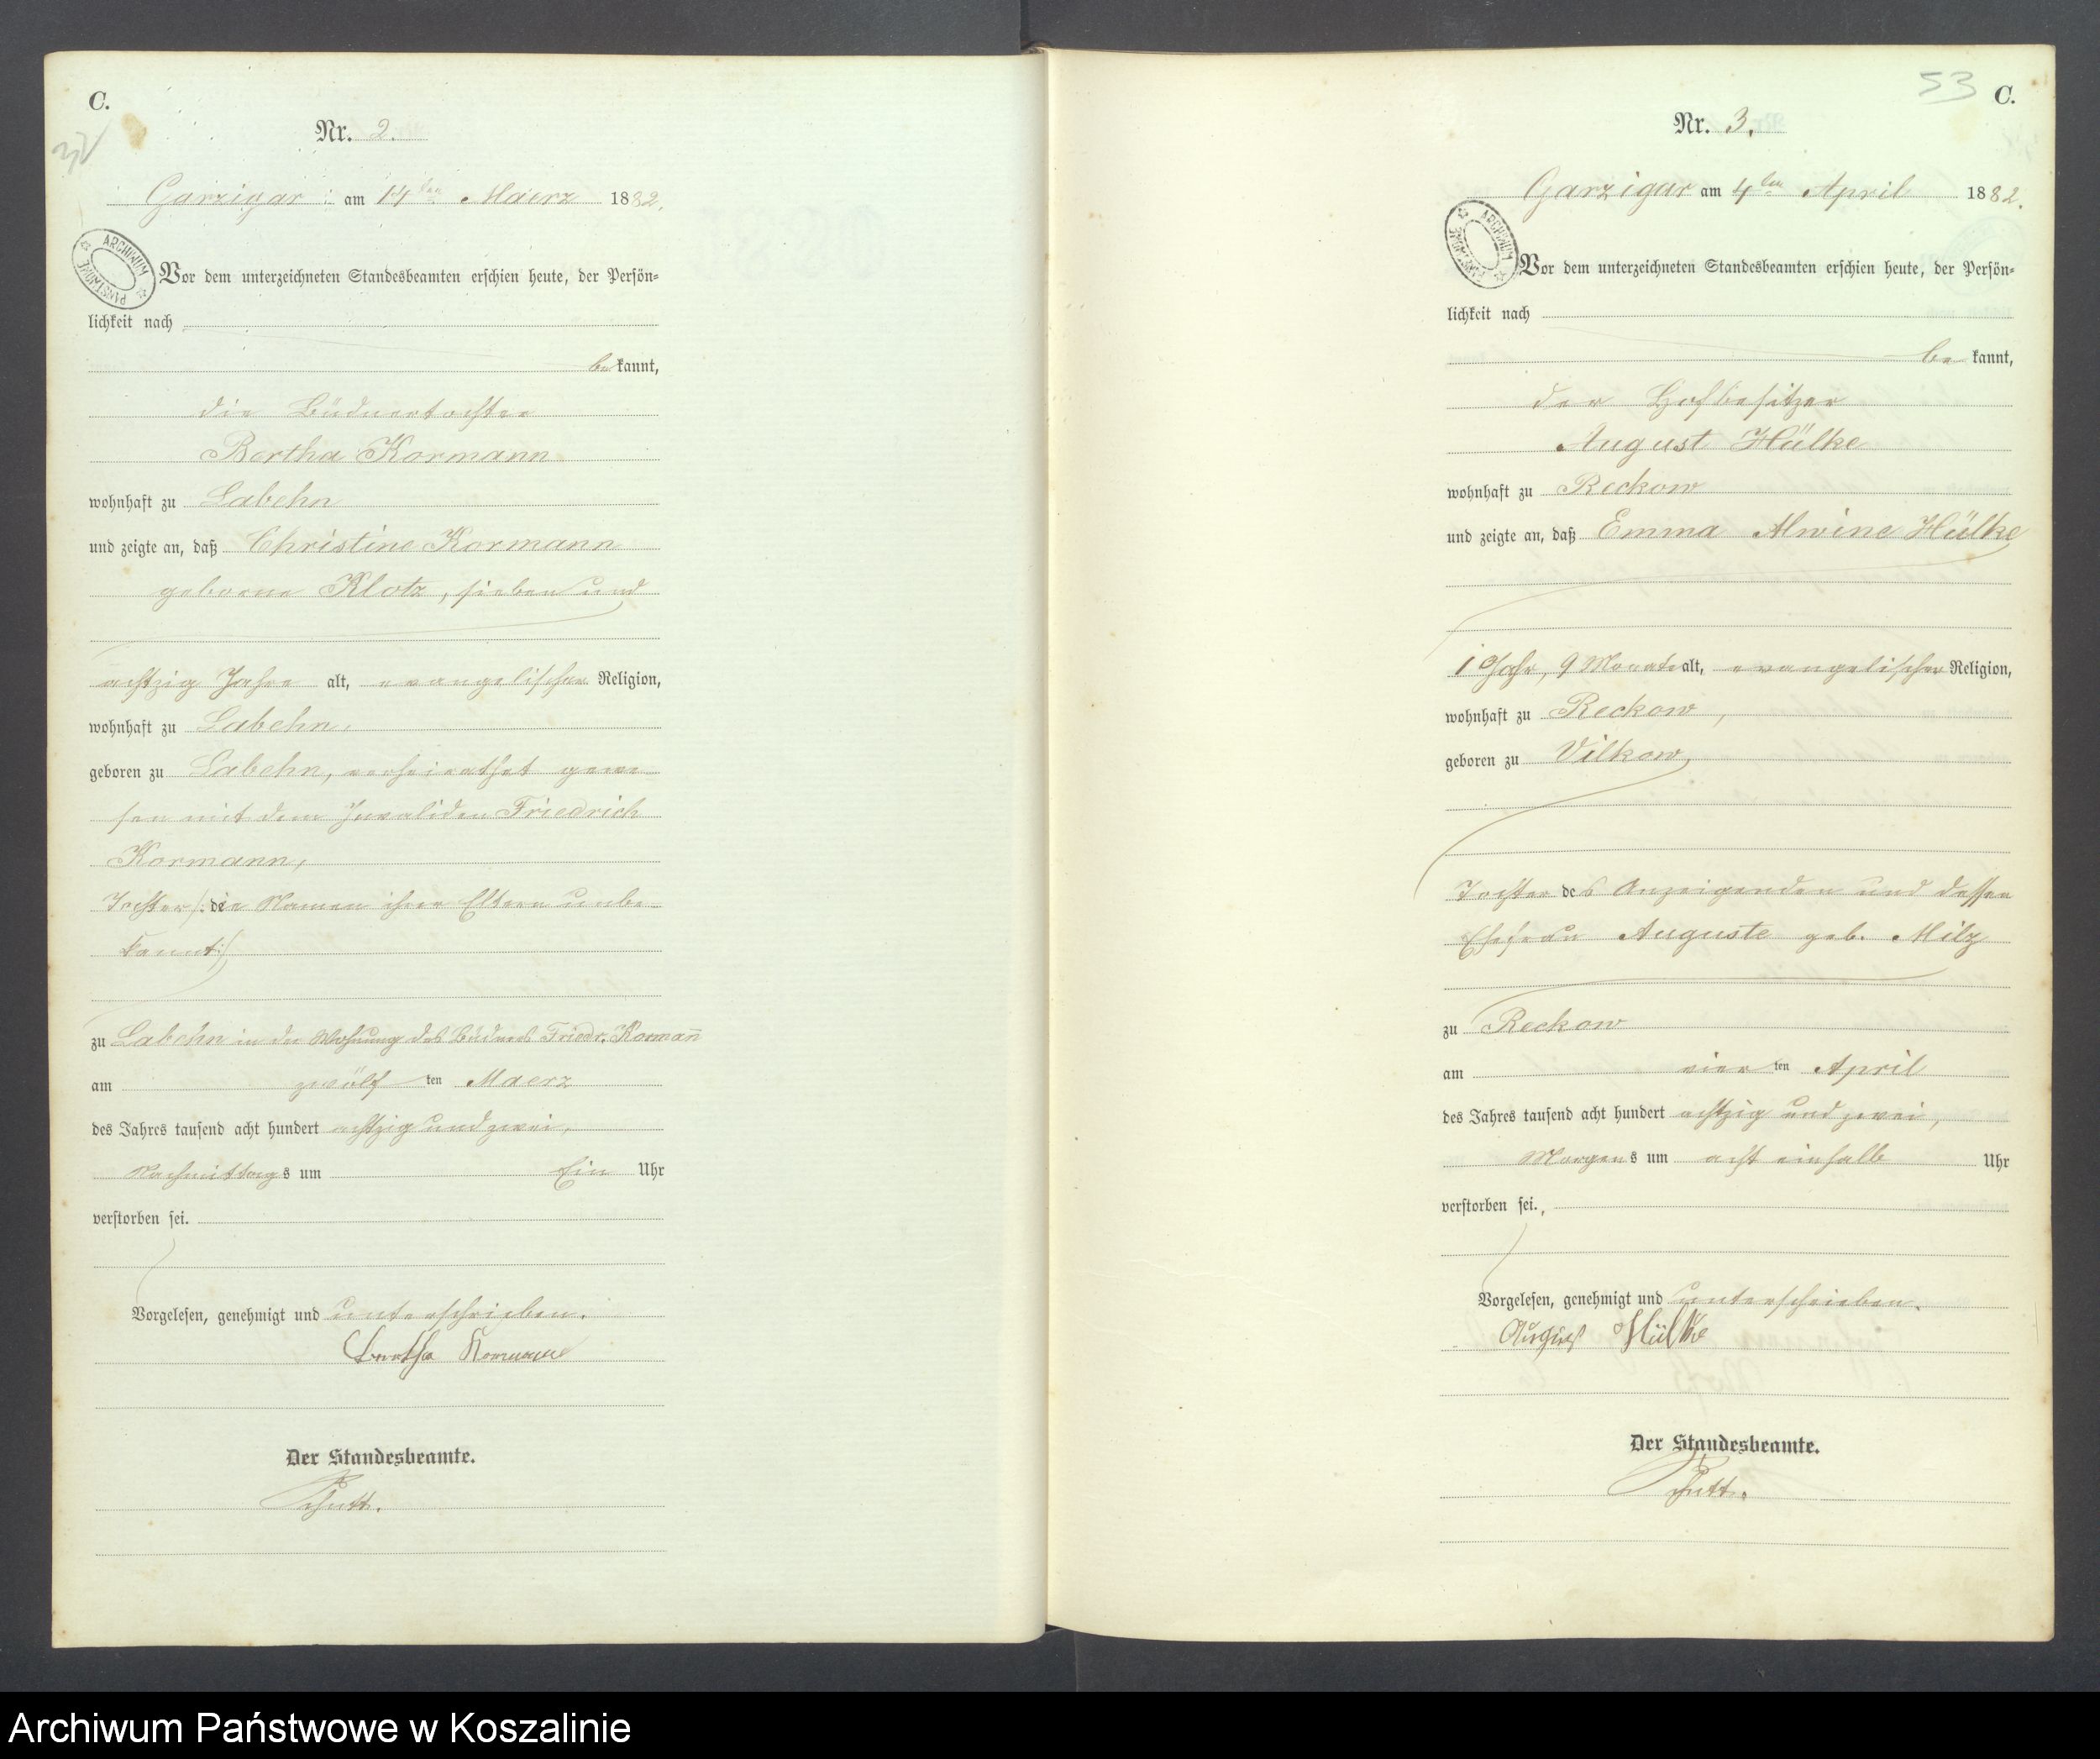 C.
32
Nr. 2.
Garzigar am 14ten Maerz 1882.
ARCHIWUM PAŃSTWOWE
Vor dem unterzeichneten Standesbeamten erschien heute, der Persön-
lichkeit nach
be kannt,
die Büdnertochter
Bertha Kormann
wohnhaft zu Labehn
und zeigte an, daß Christine Kormann
geborne Klotz, sieben und
achtzig Jahre alt, evangelischer Religion,
wohnhaft zu Labehn,
geboren zu Labehn, verheirathet gewe-
sen mit dem Invaliden Friedrich
Kormann,
Tochter /: die Namen ihrer Eltern unbe-
kannt :/
zu Labehn in der Wohnung des Büdners Friedr. Kormañ
am zwölf ten Maerz
des Jahres tausend acht hundert achtzig und zwei,
Nachmittags um Ein Uhr
verstorben sei.
Vorgelesen, genehmigt und unterschrieben.
Bertha Kormann
Der Standesbeamte.
Schutt.
53 C.
Nr. 3.
Garzigar am 4ten April 1882.
ARCHIWUM PAŃSTWOWE
Vor dem unterzeichneten Standesbeamten erschien heute, der Persön-
lichkeit nach
be kannt,
der Hofbesitzer
August Hülke
wohnhaft zu Reckow
und zeigte an, daß Emma Alwine Hülke
1 Jahr, 9 Monate alt, evangelischer Religion,
wohnhaft zu Reckow,
geboren zu Vilkow,
Tochter des Anzeigenden und dessen
Ehefrau Auguste geb. Milz
zu Reckow
am vier ten April
des Jahres tausend acht hundert achtzig und zwei,
Morgens um acht einhalb Uhr
verstorben sei.,
Vorgelesen, genehmigt und unterschrieben.
August Hülke
Der Standesbeamte.
Schutt.
Archiwum Państwowe w Koszalinie